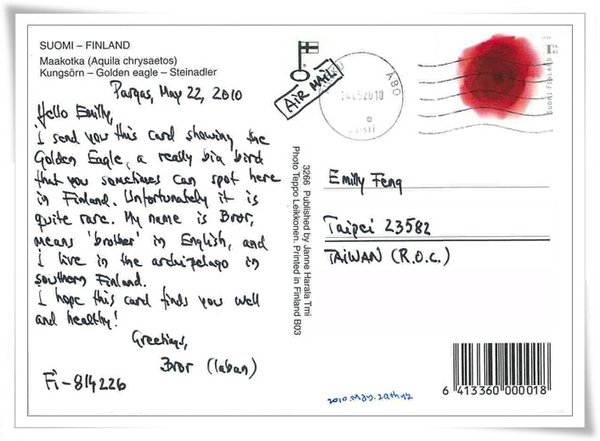 SUOMI – FINLAND
Maakotka (Aquila chrysaetos)
Kungsörn – Golden eagle – Steinadler
Pargas, May 22, 2010
Hello Emilly,
I send you this card showing the
Golden Eagle, a really big bird
that you sometimes can spot here
in Finland. Unfortunately it is
quite rare. My name is Bror,
means 'brother' in English, and
I live in the archipelago in
southern Finland.
I hope this card finds you well
and healthy!
Greetings,
Bror (laban)
Fi-814226
AIR MAIL
ÅBO
SUOMI FINLAND
3266 Published by Janne Harala Tmi
Photo Teppo Leikkonen. Printed in Finland B03
Emilly Feng
Taipei 23582
TAIWAN (R.O.C.)
2010.May.28th
6 413360 000018